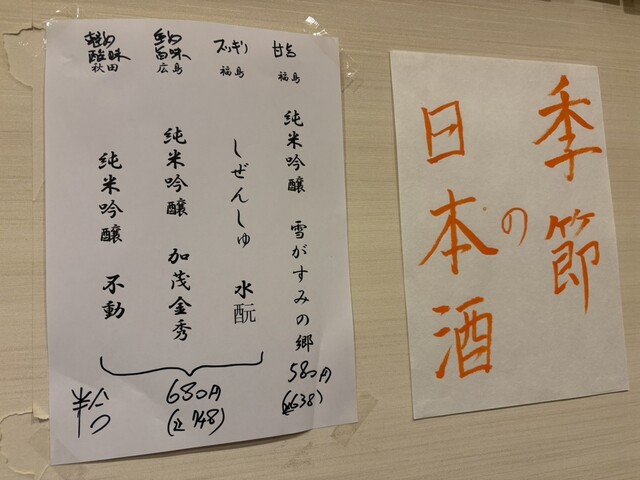 季節
の
日本酒
甘旨
福島
純米吟醸 雪がすみの郷
580円
(込638)
スッキリ
福島
しぜんしゅ 水酛
旨味
広島
純米吟醸 加茂金秀
酸味
秋田
純米吟醸 不動
680円
(込748)